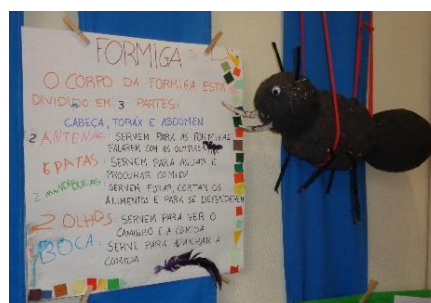 FORMIGA
O CORPO DA FORMIGA ESTÁ
DIVIDIDO EM 3 PARTES:
CABEÇA, TORAX E ABDOMEN
2 ANTENAS - SERVEM PARA AS FORMIGAS
FALAREM COM AS OUTRAS
6 PATAS - SERVEM PARA ANDAR E
PROCURAR COMIDA
2 MANDIBULAS - SERVEM FURAR, CORTAR OS
ALIMENTOS E PARA SE DEFENDEREM
2 OLHOS - SERVEM PARA VER O
CAMINHO E A COMIDA
BOCA - SERVE PARA A
COMIDA